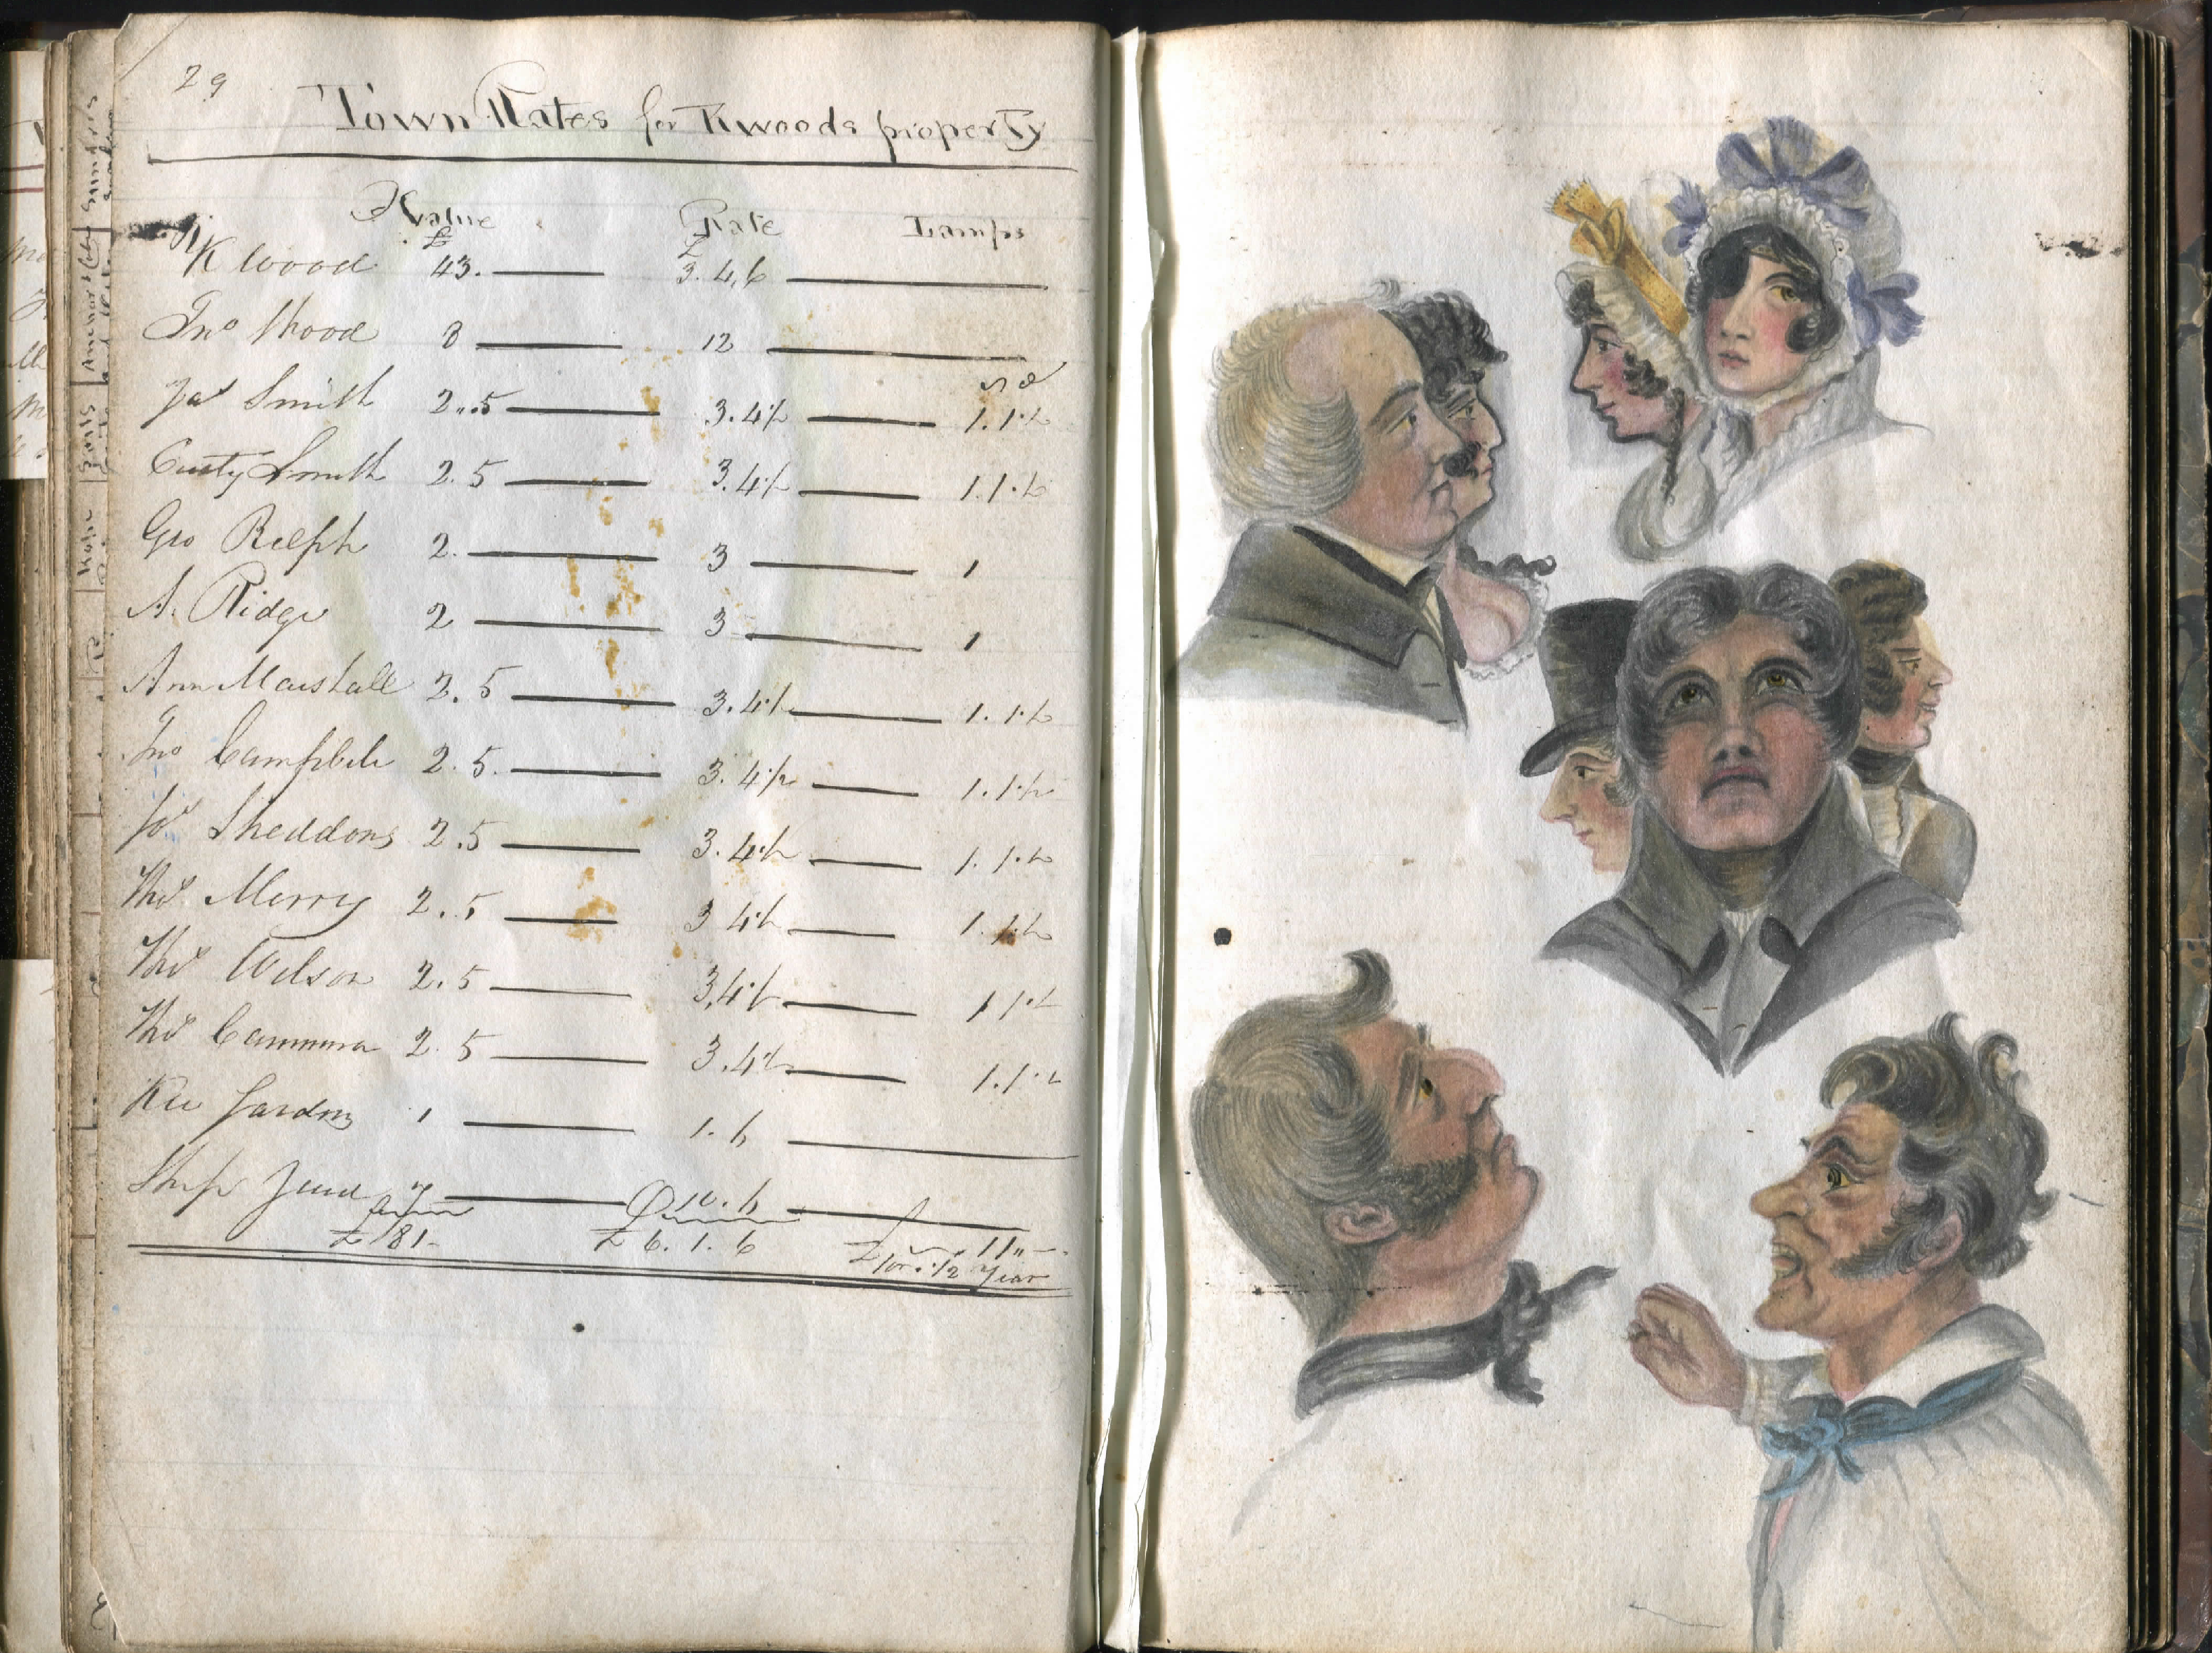 29
Town Rates for Kwoods property
Value Rate Lamps
£ £
K Wood 43. 3.4,6
Jno Wood 8 12
s d
Jas Smith 2..5 3.4½ 1.1½
Custy Smith 2.5 3.4½ 1.1½
Geo Relph 2. 3 1
A. Ridge 2 3 1
Ann Marshall 2.5 3.4½ 1.1½
Jno Campbele 2.5. 3.4½ 1.1½
Jos Sheddons 2.5 3.4½ 1.1½
Thos Merry 2.5 3 4½ 1.1½
Thos Wilson 2.5 3,4½ 1 1½
Thos 2.5 3.4½ 1.1½
1 1.6
Ship 7 10.6
£ 81- £ 6.1.6 £ 11"-
for ½ Year